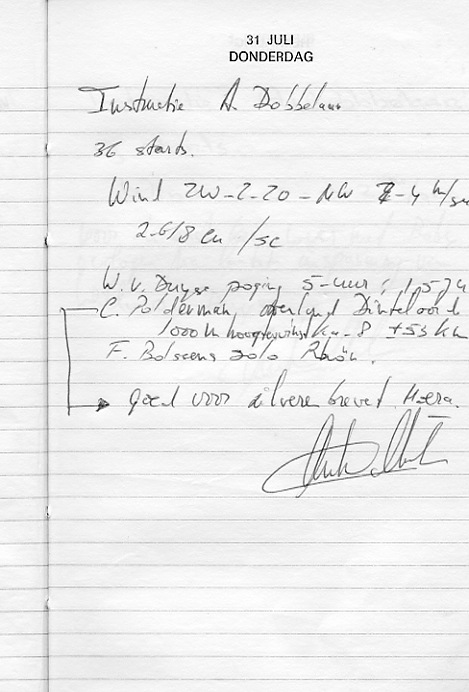 31 JULI
DONDERDAG
Instructie A. Dobbelaar
36 starts.
Wind ZW-Z-ZO-NW 2-4 m/sec
2-6/8 cu /sc
W. v. poging 5-uur : 1,5
C. Polderman, overland Dinteloord
1000 m hoogtewinst Ka-8 ±53 km
F. solo
goed voor zilveren brevet. Hoera.